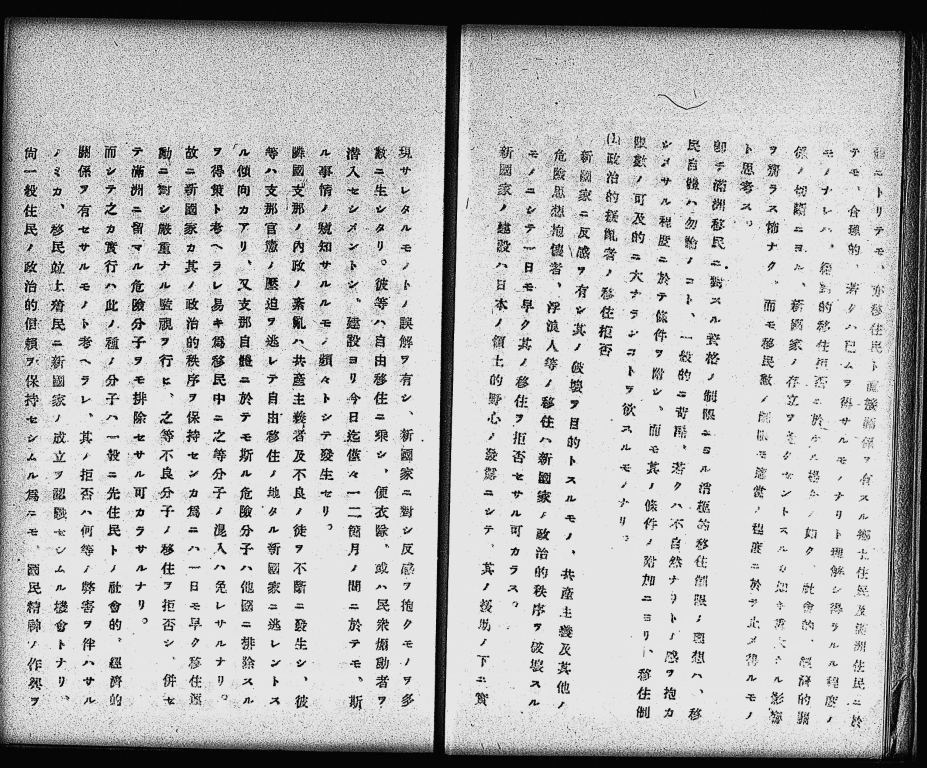 テモ、合理的、若クハ已ムヲ得サルモノナリト理解シ得ラルル程度ノ
モノナレハ、絕對的移住拒否ニ於ケル場合ノ如ク、社會的、經濟的關
係ノ切斷ニヨル、新國家ノ存立ヲ
ヲ齎ラス怖ナク。而モ移民數ノ制限モ適當ノ程度ニ於テ止メ得ルモノ
ト思考ス。
卽チ滿洲移民ニ對スル資格ノ制限ニヨル消極的移住制限ノ理想ハ、移
民自體ハ勿論ノコト、一般的ニ苛酷、若クハ不自然ナリトノ感ヲ抱カ
シメサル程度ニ於テ條件ヲ附シ、而モ其ノ條件ノ附加ニヨリ、移住制
限數ノ可及的ニ大ナランコトヲ欲スルモノナリ。
(1)政治的攪亂者ノ移住拒否
新國家ニ反感ヲ有シ其ノ破壞ヲ目的トスルモノ、共產主義及其他ノ
危險思想抱懷者、浮浪人等ノ移住ハ新國家ノ政治的秩序ヲ破壞スル
モノニシテ一日モ早ク其ノ移住ヲ拒否セサル可カラス。
新國家ノ建設ハ日本ノ領土的野心ノ發露ニシテ、其ノ援助ノ下ニ實
現サレタルモノトノ誤解ヲ有シ、新國家ニ對シ反感ヲ抱クモノヲ多
數ニ生シタリ。彼等ハ自由移住ニ乘シ、便衣隊、或ハ民衆煽動者ヲ
潛入セシメントシ、建設ヨリ今日迄僅々一二箇月ノ間ニ於テモ、斯
ル事情ノ感知サルルモノ頻々トシテ發生セリ。
隣國支那ノ內政ノ紊亂ハ共產主義者及不良ノ徒ヲ不斷ニ發生シ、彼
等ハ支那官憲ノ壓迫ヲ逃レテ自由移住ノ地タル新國家ニ逃レントス
ル傾向カアリ、又支那自體ニ於テモ斯ル危險分子ハ他國ニ排除スル
ヲ得策ト考ヘラレ易キ爲移民中ニ之等分子ノ混入ハ免レサルナリ。
故ニ新國家カ其ノ政治的秩序ヲ保持センカ爲ニハ一日モ早ク移住運
動ニ對シ嚴重ナル監視ヲ行ヒ、之等不良分子ノ移住ヲ拒否シ、併セ
テ滿洲ニ留マル危險分子ヲモ排除セサル可カラサルナリ。
而シテ之カ實行ハ此ノ種ノ分子ハ一般ニ先住民トノ社會的、經濟的
關係ヲ有セサルモノト考ヘラレ、其ノ拒否ハ何等ノ弊害ヲ伴ハサル
ノミカ、移民竝土着民ニ新國家ノ成立ヲ認識セシムル機會トナリ、
尙一般住民ノ政治的信賴ヲ保持セシムル爲ニモ、國民精神ノ作興ヲ